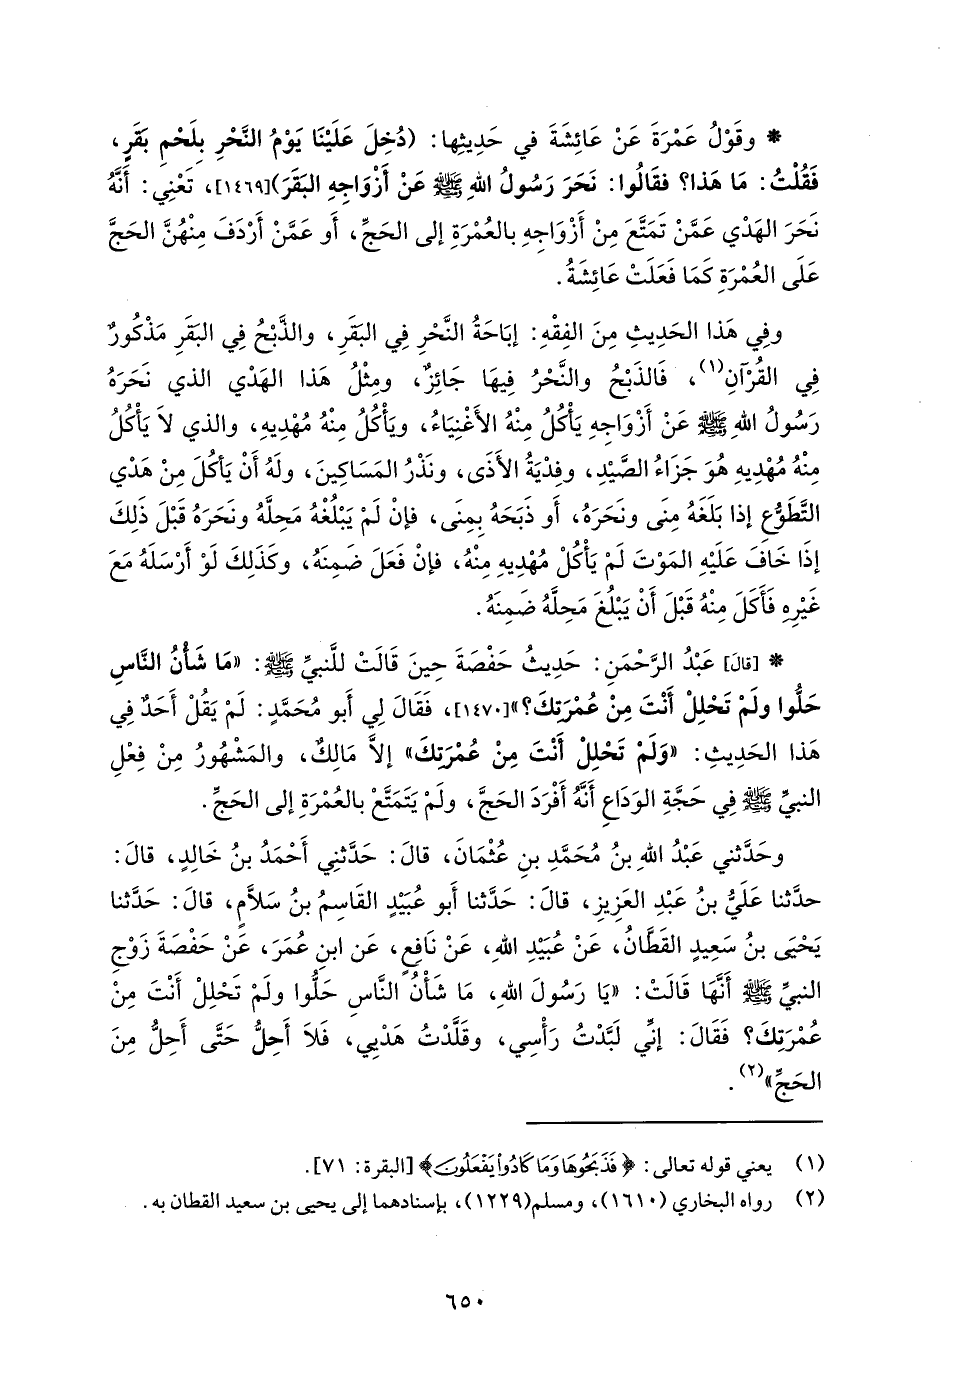 * وقَوْلُ عَمْرَةَ عَنْ عَائِشَةَ في حَدِيثِها: (دُخِلَ عَلَيْنَا يَوْمُ النَّحْرِ بِلَحْمِ بَقَرٍ،
فَقُلْتُ: مَا هَذا؟ فقَالُوا: نَحَرَ رَسُولُ اللهِ ﷺ عَنْ أَزْوَاجِهِ البَقَرَ)[١٤٦٩]، تَعْنِي: أَنَّهُ
نَحَرَ الهَدْي عَمَّنْ تَمَتَّعَ مِنْ أَزْوَاجِهِ بالعُمْرَةِ إلى الحَجِّ، أَو عَمَّنْ أَرْدَفَ مِنْهُنَّ الحَجَّ
عَلَى العُمْرَةِ كَمَا فَعَلَتْ عَائِشَةُ.
وفِي هَذا الحَدِيثِ مِنَ الفِقْهِ: إبَاحَةُ النَّحْرِ فِي البَقَرِ، والذَّبْحُ فِي البَقَرِ مَذْكُورٌ
فِي القُرْآنِ(١)، فَالذَبْحُ والنَّحْرُ فِيهَا جَائِزٌ، ومِثْلُ هَذا الهَدْي الذي نَحَرَهُ
رَسُولُ اللهِ ﷺ عَنْ أَزْوَاجِهِ يَأْكُلُ مِنْهُ الأَغْنِيَاءُ، ويَأْكُلُ مِنْهُ مُهْدِيهِ، والذي لاَ يَأْكُلُ
مِنْهُ مُهْدِيهِ هُوَ جَزَاءُ الصَّيْدِ، وفِدْيَةُ الأَذَى، ونَذْرُ المَسَاكِينَ، ولَهُ أَنْ يَأكُلَ مِنْ هَدْي
التَّطَوُّعِ إذا بَلَغَهُ مِنَى ونَحَرَهُ، أَو ذَبَحَهُ بِمِنَى، فإنْ لَمْ يَبْلُغْهُ مَحِلَّهُ ونَحَرَهُ قَبْلَ ذَلِكَ
إذَا خَافَ عَلَيْهِ المَوْتَ لَمْ يَأْكُلْ مُهْدِيهِ مِنْهُ، فإنْ فَعَلَ ضَمِنَهُ، وكَذَلِكَ لَوْ أَرْسَلَهُ مَعَ
غَيْرِهِ فَأَكَلَ مِنْهُ قَبْلَ أَنْ يَبْلُغَ مَحِلَّهُ ضَمِنَهُ.
* [قالَ] عَبْدُ الرَّحْمَنِ: حَدِيثُ حَفْصَةَ حِينَ قَالَتْ للنَّبيِّ ﷺ: «مَا شَأْنُ النَّاسِ
حَلُّوا ولَمْ تَحْلِلْ أَنْتَ مِنْ عُمْرَتِكَ؟»[١٤٧٠]، فَقَالَ لِي أَبو مُحَمَّدٍ: لَمْ يَقُلْ أَحَدٌ فِي
هَذا الحَدِيثِ: «وَلَمْ تَحْلِلْ أَنْتَ مِنْ عُمْرَتِكَ» إلاَّ مَالِكٌ، والمَشْهُورُ مِنْ فِعْلِ
النبيِّ ﷺ فِي حَجَّةِ الوَدَاعِ أَنَّهُ أَفْرَدَ الحَجَّ، ولَمْ يَتَمَتَّعْ بالعُمْرَةِ إلى الحَجِّ.
وحَدَّثني عَبْدُ اللهِ بنُ مُحَمَّدِ بنِ عُثْمَانَ، قالَ: حَدَّثنِي أَحْمَدُ بنُ خَالِدٍ، قالَ:
حدَّثنا عَلَيُّ بنُ عَبْدِ العَزِيزِ، قالَ: حَدَّثنا أَبو عُبَيْدٍ القَاسِمُ بنُ سَلاَّمٍ، قالَ: حَدَّثنا
يَحْيَى بنُ سَعِيدٍ القَطَّانُ، عَنْ عُبَيْدِ اللهِ، عَنْ نَافِعٍ، عَن ابنِ عُمَرَ، عَنْ حَفْصَةَ زَوْجِ
النبيِّ ﷺ أَنَّهَا قَالَتْ: «يَا رَسُولَ اللهِ، مَا شَأْنُ النَّاسِ حَلُّوا ولَمْ تَحْلِلْ أَنْتَ مِنْ
عُمْرَتِكَ؟ فَقَالَ: إنِّي لَبَّدْتُ رَأْسِي، وقَلَّدْتُ هَدْيِي، فَلاَ أَحِلُّ حَتَّى أَحِلُّ مِنَ
الحَجِّ»(٢).
(١) يعني قوله تعالى: ﴿فَذَبَحُوهَا وَمَا كَادُوا يَفْعَلُونَ﴾ [البقرة: ٧١].
(٢) رواه البخاري (١٦١٠)، ومسلم(١٢٢٩)، بإسنادهما إلى يحيى بن سعيد القطان به.
٦٥٠